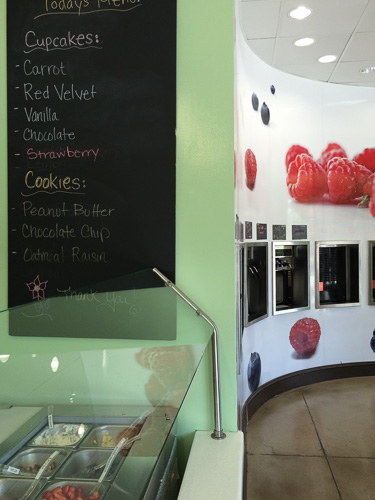 Todays Menu:
Cupcakes:
- Carrot
- Red Velvet
- Vanilla
- Chocolate
- Strawberry
Cookies:
- Peanut Butter
- Chocolate Chip
- Oatmeal Raisin
Thank You!